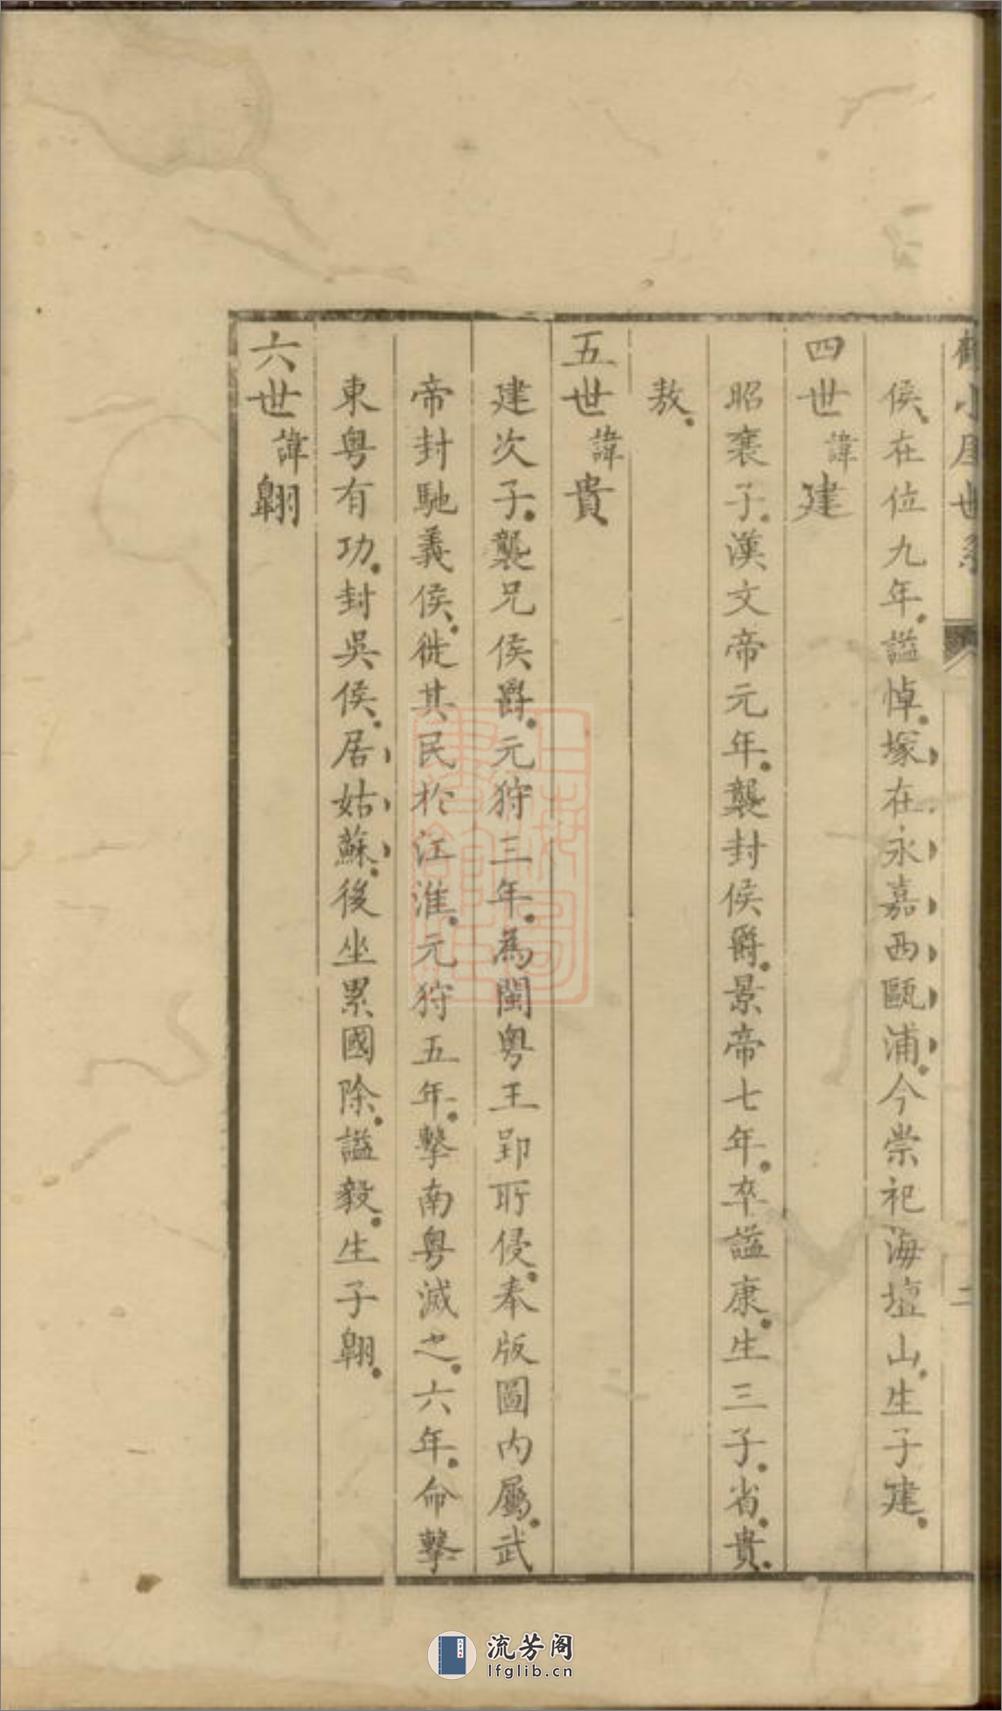 侯在位九年謚悼塚在永嘉西甌浦今崇祀海壇山生子建
四世諱建
昭襄子漢文帝元年襲封侯爵景帝七年卒謚康生三子省貴
敖
五世諱貴
建次子襲兄侯爵元狩三年為閩粤王郢所侵奉版圖内屬武
帝封馳義侯徙其民於江淮元狩五年擊南粤滅之六年命擊
東粤有功封吳侯居姑蘇後坐累國除謚毅生子翺
六世諱翺
二
流芳阁
lfglib.cn